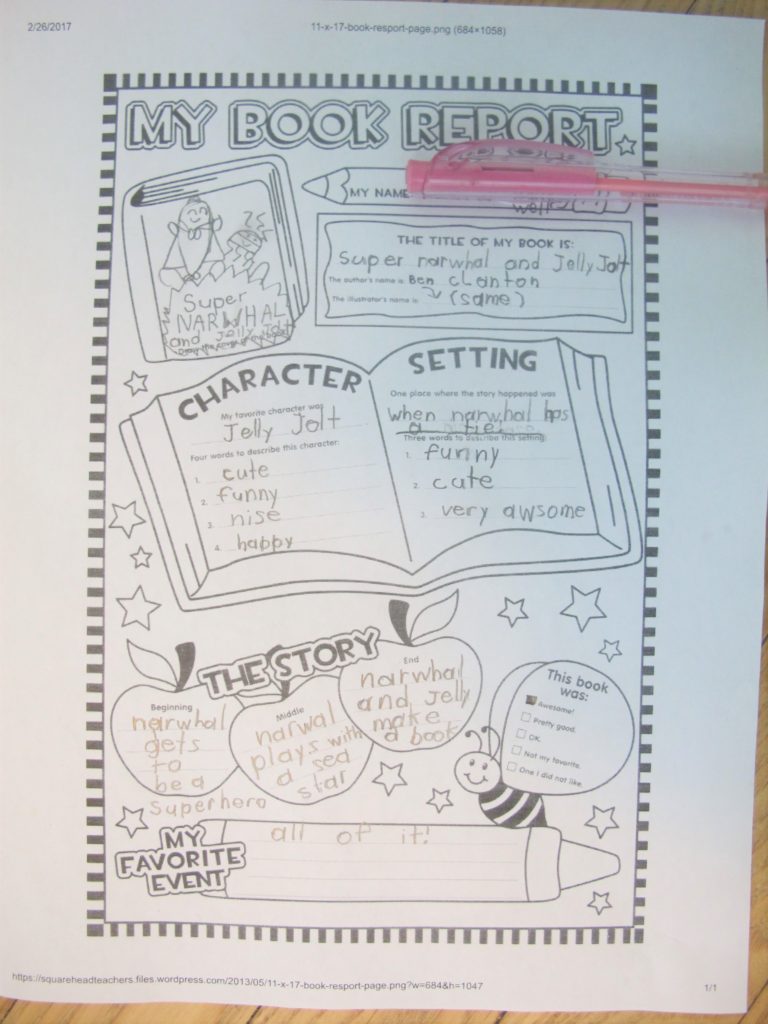 2/26/2017
11-x-17-book-resport-page.png (684×1058)
MY BOOK REPORT
MY NAME
THE TITLE OF MY BOOK IS:
Super narwhal and Jelly Jolt
The author's name is Ben clanton
The illustrator's name is (same)
Super
NARWHAL
and Jelly Jolt
CHARACTER
My favorite character was
Jelly Jolt
Four words to describe this character:
1. cute
2. funny
3. nise
4. happy
SETTING
One place where the story happened was
when narwhal has
a tie
Three words to describe this setting:
1. funny
2. cute
3. very awsome
THE STORY
Beginning
narwhal
gets
to
be a
Superhero
Middle
narwal
plays with
a sea
star
End
narwhal
and Jelly
make
a book
This book
was:
Awesome!
Pretty good.
OK.
Not my favorite.
One I did not like.
MY
FAVORITE
EVENT
all of it!
https://squareheadteachers.files.wordpress.com/2013/05/11-x-17-book-resport-page.png?w=684&h=1047
1/1